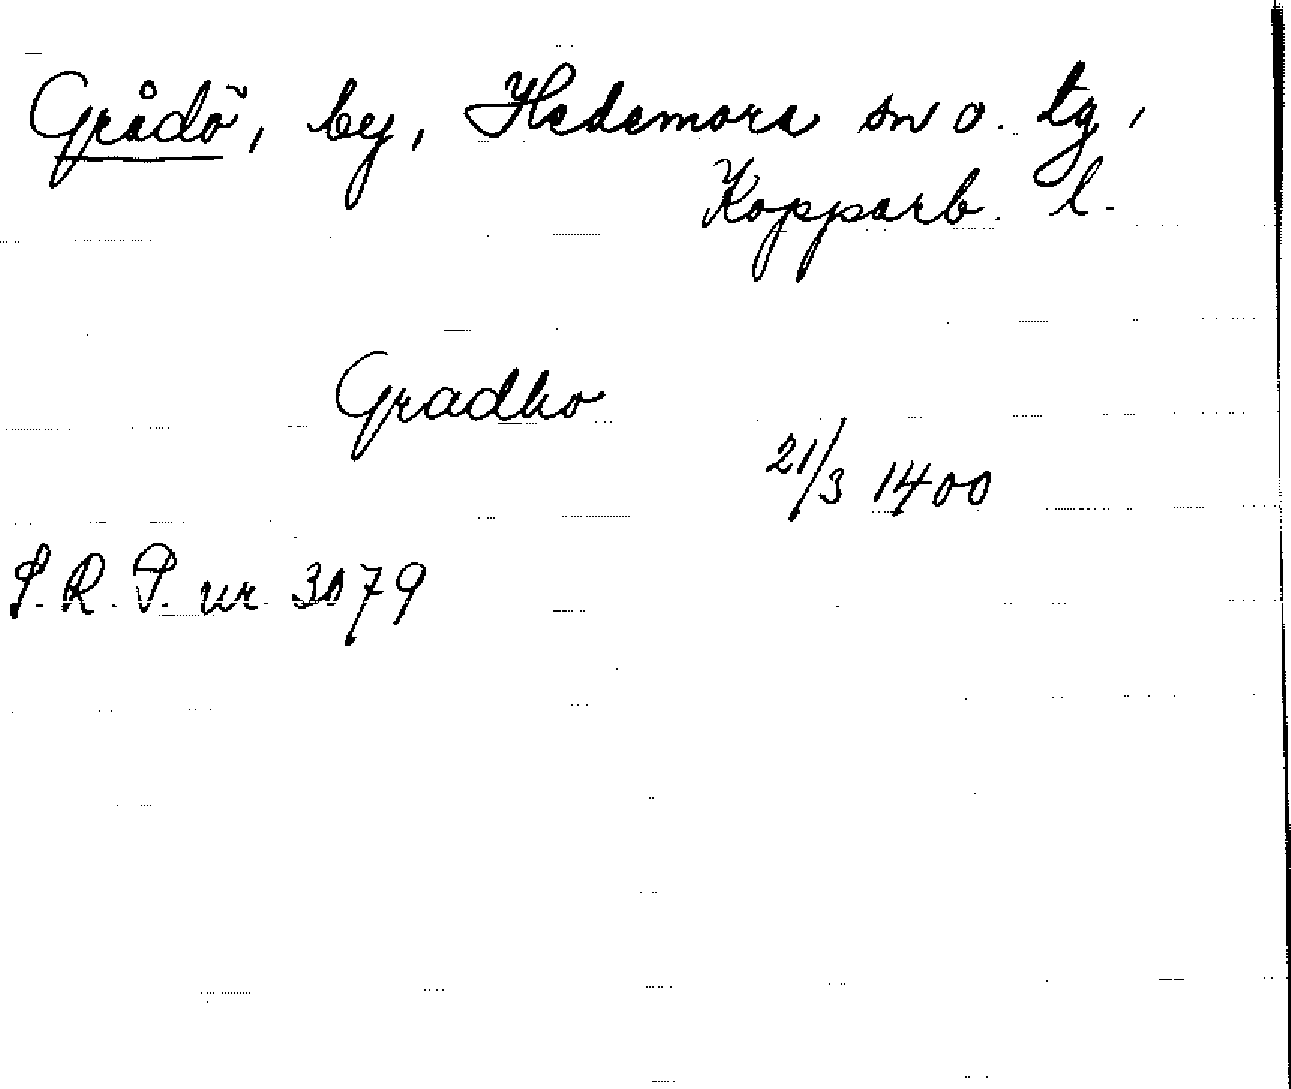 Grådö, by, Hedemora sn o. tg,
Kopparb. l.
Gradho
21/3 1400
S.R.P. nr. 3079